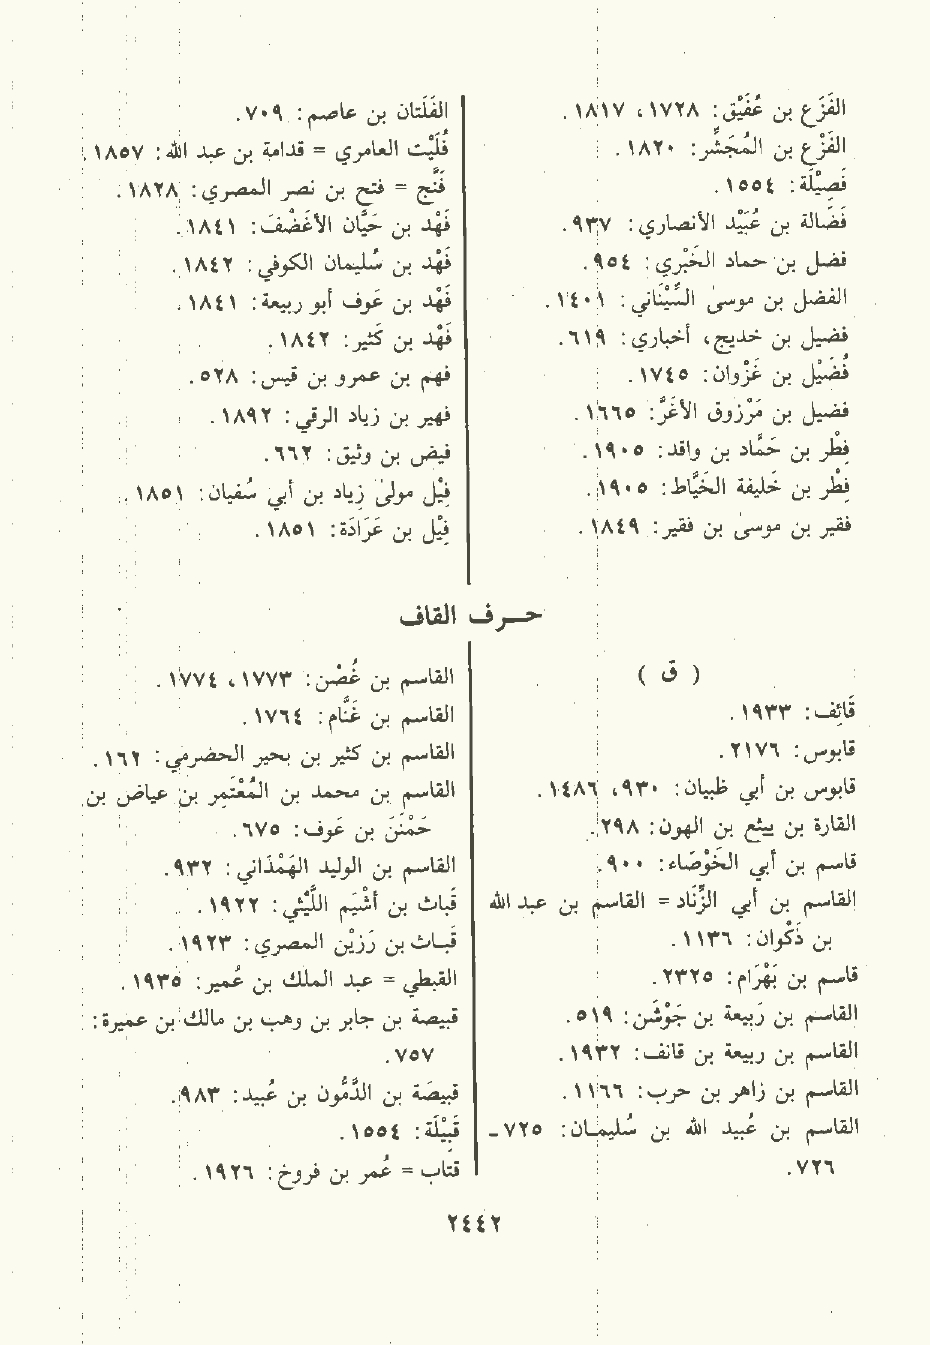 الفَزَع بن عُفَيْق: ١٧٢٨، ١٨١٧.
الفَزْع بن المُجَشَّر: ١٨٢٠.
فَصِيْلَة: ١٥٥٤.
فَضَالة بن عُبَيْد الأنصاري: ٩٣٧.
فضل بن حماد الخَبْري: ٩٥٤.
الفضل بن موسىٰ السِّيْنَاني: ١٤٠١.
فضيل بن خديج، أخباري: ٦١٩.
فُضَيْل بن غَزْوان: ١٧٤٥.
فضيل بن مَرْزوق الأغَرّ: ١٦٦٥.
فِطْر بن حَمَّاد بن واقد: ١٩٠٥.
فِطْر بن خَليفة الخَيَّاط: ١٩٠٥.
فقير بن موسىٰ بن فقير: ١٨٤٩.
الفَلَتان بن عاصم: ٧٠٩.
فُلَيْت العامري = قدامة بن عبد الله: ١٨٥٧.
فَنَّج = فتح بن نصر المصري: ١٨٢٨.
فَهْد بن حَيَّان الأغْضَف: ١٨٤١.
فَهْد بن سُليمان الكوفي: ١٨٤٢.
فَهْد بن عَوف أبو ربيعة: ١٨٤١.
فَهْد بن كَثير: ١٨٤٢.
فهم بن عمرو بن قيس: ٥٢٨.
فهير بن زياد الرقي: ١٨٩٢.
فيض بن وثيق: ٦٦٢.
فِيْل مولىٰ زياد بن أبي سُفيان: ١٨٥١.
فِيْل بن عَرَادَة: ١٨٥١.
حـــرف القاف
( ق )
قَائِف: ١٩٣٣.
قابوس: ٢١٧٦.
قابوس بن أبي ظبيان: ٩٣٠، ١٤٨٦.
القارة بن ييثع بن الهون: ٢٩٨.
قاسم بن أبي الخَوْصَاء: ٩٠٠.
القاسم بن أبي الزِّنَاد= القاسم بن عبد الله
بن ذَكْوان: ١١٣٦.
قاسم بن بَهْرَام: ٢٣٢٥.
القاسم بن رَبيعة بن جَوْشَن: ٥١٩.
القاسم بن ربيعة بن قانف: ١٩٣٢.
القاسم بن زاهر بن حرب: ١١٦٦.
القاسم بن عُبيد الله بن سُليمـان: ٧٢٥ـ
٧٢٦.
القاسم بن غُصْن: ١٧٧٣، ١٧٧٤.
القاسم بن غَنَّام: ١٧٦٤.
القاسم بن كثير بن بحير الحضرمي: ١٦٢.
القاسم بن محمد بن المُعْتَمِر بن عياض بن
حَمْنَن بن عَوف: ٦٧٥.
القاسم بن الوليد الهَمْدَاني: ٩٣٢.
قَباث بن أشْيَم اللَّيْثي: ١٩٢٢.
قَبـاث بن رَزِيْن المصري: ١٩٢٣.
القبطي = عبد الملك بن عُمير: ١٩٣٥.
قبيصة بن جابر بن وهب بن مالك بن عميرة:
٧٥٧.
قبيصَة بن الدَّمُّون بن عُبيد: ٩٨٣.
قَبِيْلَة: ١٥٥٤.
قتاب = عُمر بن فروخ: ١٩٢٦.
٢٤٤٢